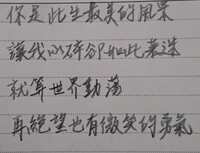 你是此生最美的風景
讓我心碎卻如此著迷
就算世界動蕩
再絕望也有微笑的勇氣